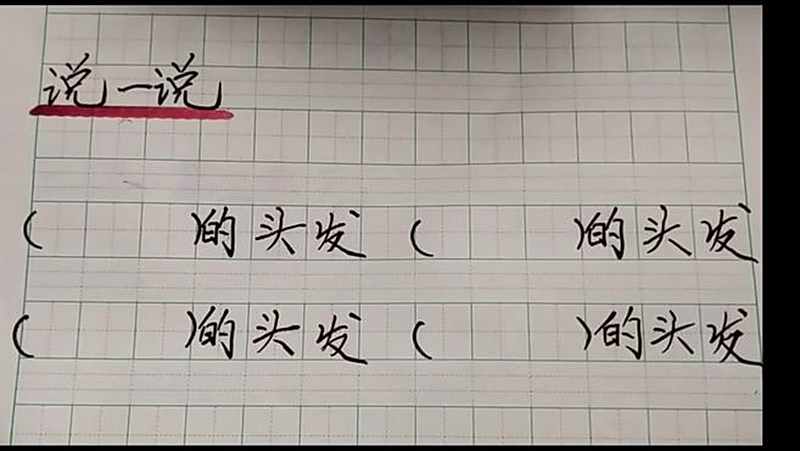 说一说
(      )的头发 (      )的头发
(      )的头发 (      )的头发